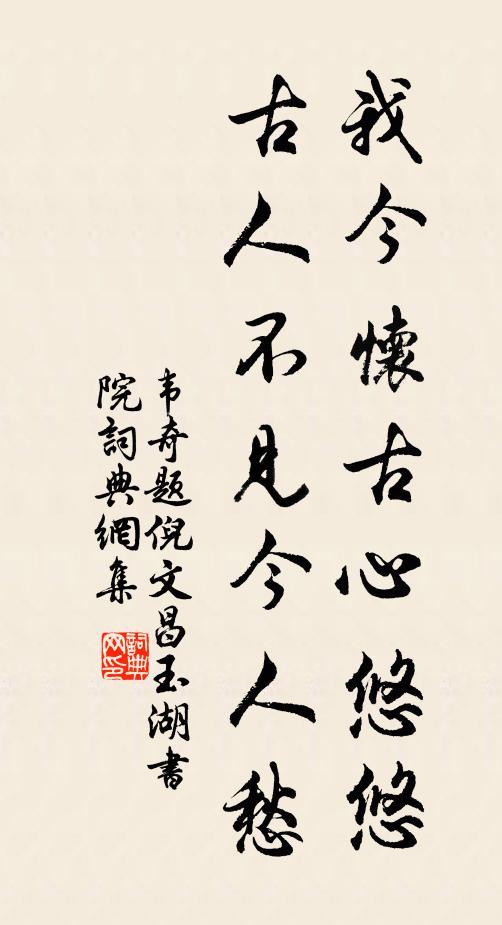 我今懷古心悠悠
古人不見今人愁
韦奇题倪文昌玉湖書
院詞典網集
詞典网印